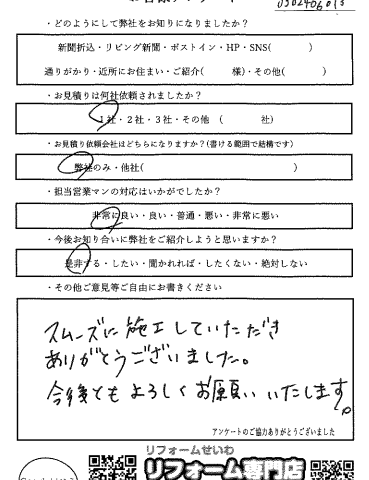 ・どのようにして弊社をお知りになりましたか？
新聞折込・リビング新聞・ポストイン・HP・SNS(　　　)
通りがかり・近所にお住まい・ご紹介(　　　様)・その他(　　　)
・お見積りは何社依頼されましたか？
1社・2社・3社・その他 (　　　社)
・お見積り依頼会社はどちらになりますか？(書ける範囲で結構です)
弊社のみ・他社(　　　)
・担当営業マンの対応はいかがでしたか？
非常に良い・良い・普通・悪い・非常に悪い
・今後お知り合いに弊社をご紹介しようと思いますか？
是非する・したい・聞かれれば・したくない・絶対しない
・その他ご意見等ご自由にお書きください
スムーズに施工していただき
ありがとうございました。
今後ともよろしくお願いいたします。
アンケートのご協力ありがとうございました
リフォームせいわ
リフォーム専門店